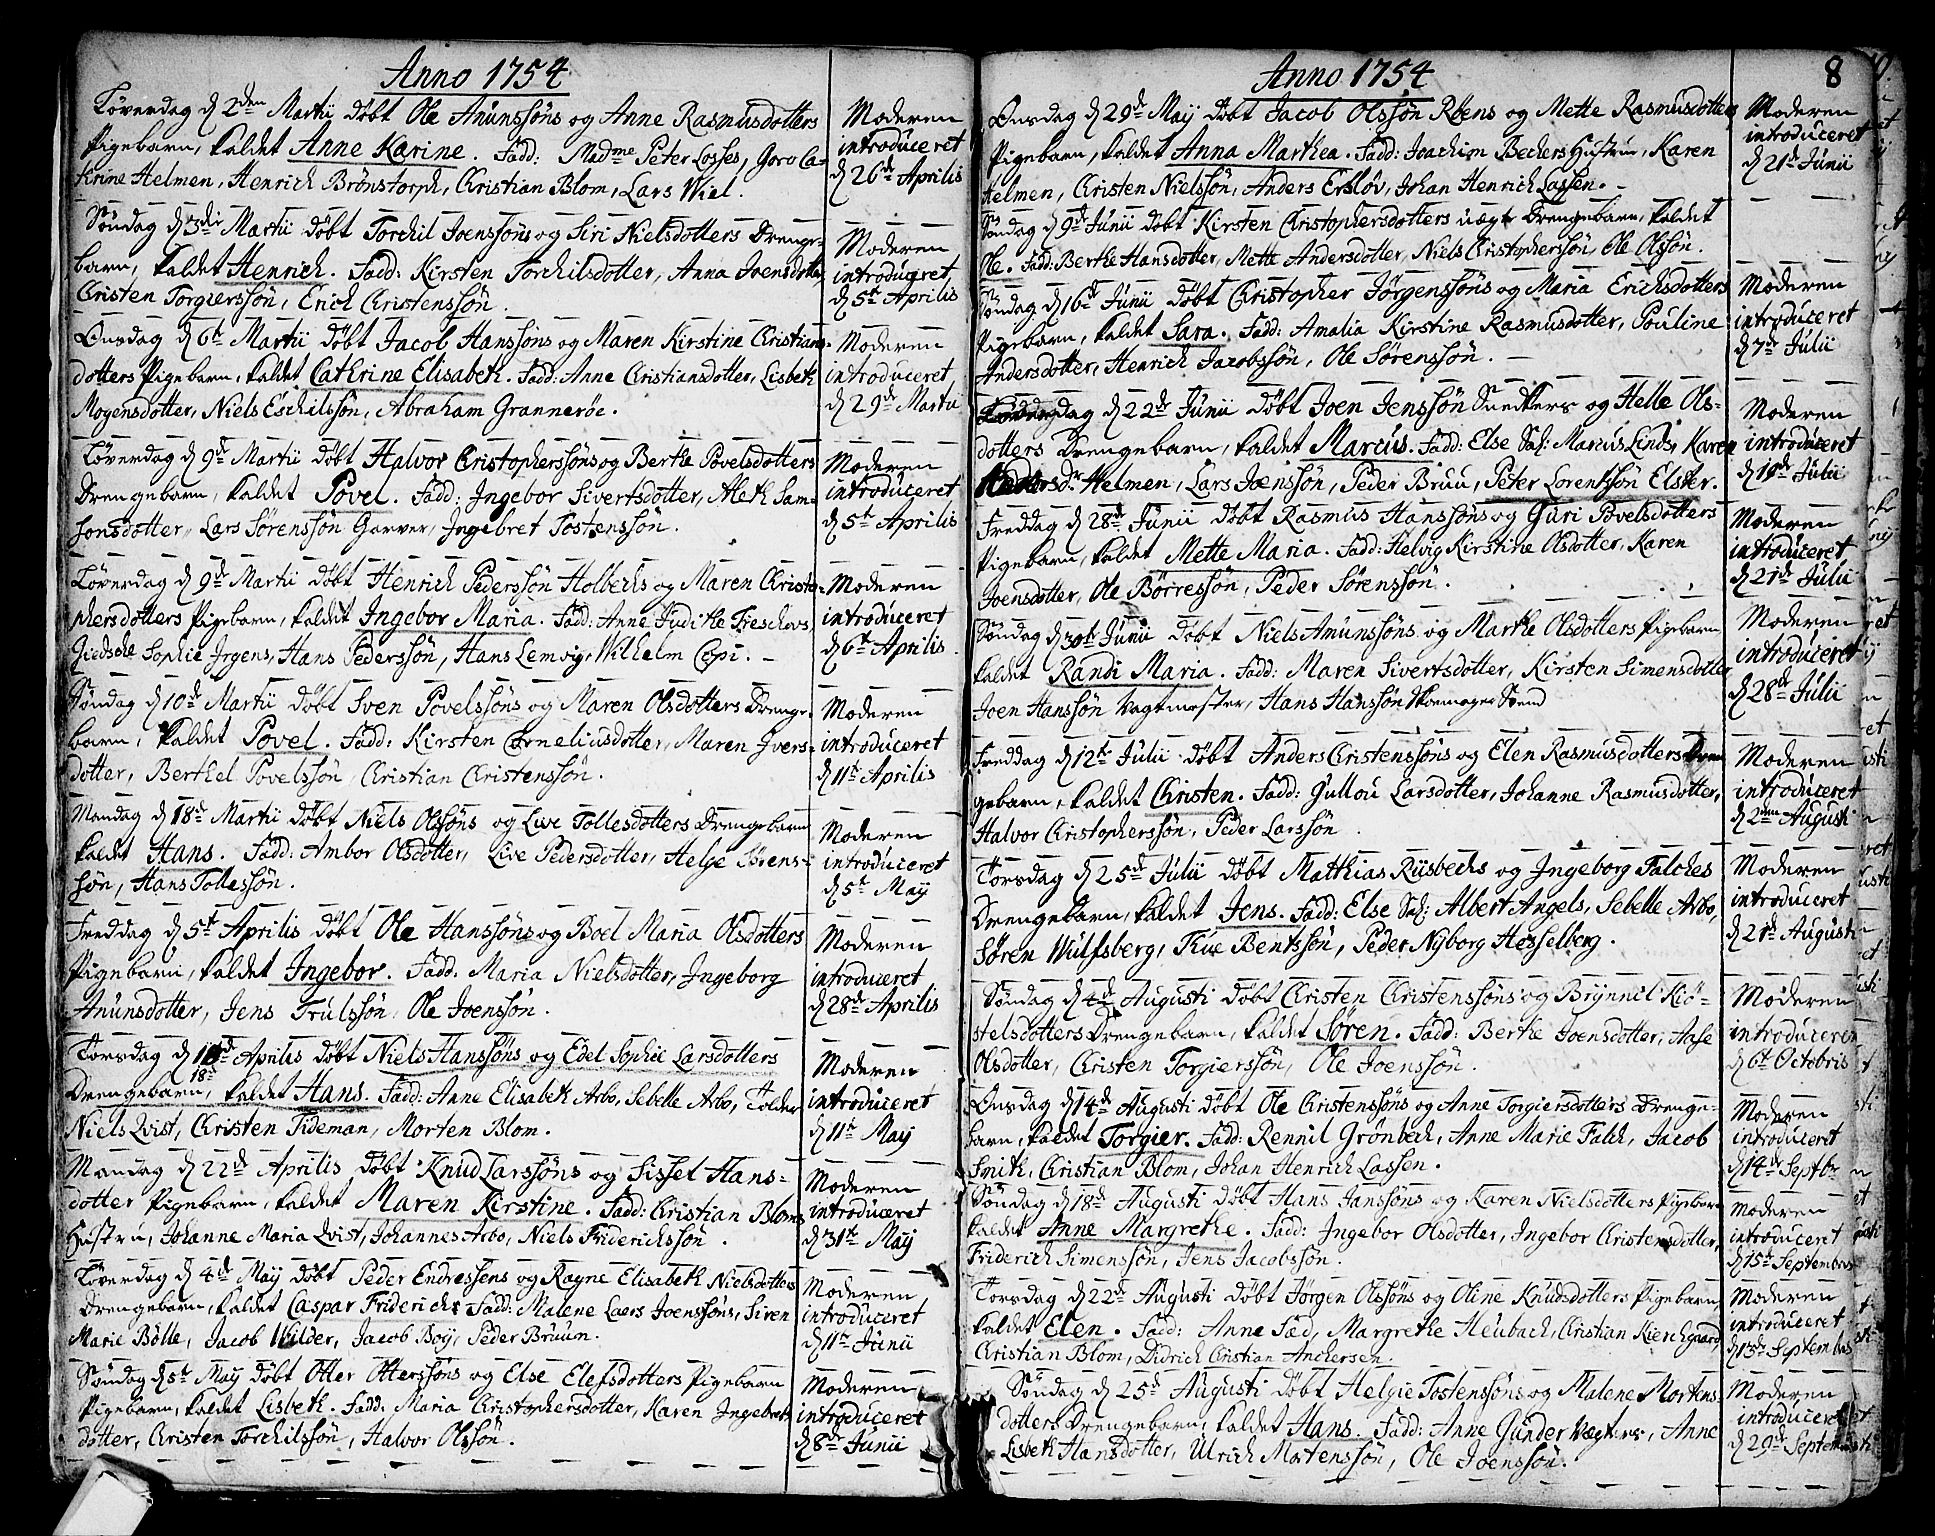 Anno 1754
Löverdag d 2den Martii döbt Ole Anunssöns og Anne Rasmusdotters
Pigebarn, kaldet Anne Karine. Fadd: Madme Peter Losses, Goro Ca-
trine Helmen, Henrich Brönstorph, Christian Blom, Lars Wiel.
Moderen
introduceret
d 26de Aprilis
Söndag d 3die Martii döbt Torchil Joenssöns og Siri Nielsdotters Drenge-
barn, kaldet Henrich. Fadd: Kirsten Torchilsdotter, Anna Joensdotter,
Christen Torgierssön, Erich Christenssön.
Moderen
introduceret
d 5te Aprilis
Onsdag d 6te Martii döbt Jacob Hanssöns og Maren Kirstine Christians-
dotters Pigebarn, kaldet Cathrine Elisabeth. Fadd: Anne Christiansdotter, Lisbeth
Mogensdotter, Niels Eschilssön, Abraham Granneröe.
Moderen
introduceret
d 29de Martii
Löverdag d 9de Martii döbt Halvor Christopherssöns og Berthe Povelsdotters
Drengebarn, kaldet Povel. Fadd: Ingebor Sivertsdotter, Aleth Sam-
sonsdotter, Lars Sörenssön Garver, Ingebret Tostenssön.
Moderen
introduceret
d 5te Aprilis
Löverdag d 9de Martii döbt Henrich Pederssön Holbechs og Maren Christo-
phersdotters Pigebarn, kaldet Ingebor Maria. Fadd: Anne Judithe Treschovs,
Giedsche Sophie Irgens, Hans Pederssön, Hans Lemvig, Wilhelm Copi.
Moderen
introduceret
d 6te Aprilis
Söndag d 10de Martii döbt Sven Povelssöns og Maren Olsdotters Drenge-
barn, kaldet Povel. Fadd: Kirsten Corneliusdotter, Maren Ivers-
dotter, Berthel Povelssön, Christian Christenssön.
Moderen
introduceret
d 11te Aprilis
Mandag d 18de Martii döbt Niels Olssöns og Live Tollesdotters Drengebarn
kaldet Hans. Fadd: Ambor Olsdotter, Live Pedersdotter, Helge Sörens-
sön, Hans Tollessön.
Moderen
introduceret
d 5te Maÿ
Freddag d 5te Aprilis döbt Ole Hanssöns og Boel Maria Olsdotters
Pigebarn, kaldet Ingebor. Fadd: Maria Nielsdotter, Ingeborg
Anunsdotter, Jens Trulssön, Ole Joenssön.
Moderen
introduceret
d 28de Aprilis
Torsdag d 18de Aprilis döbt Niels Hanssöns og Edel Sophie Larsdotters
18de
Drengebarn, kaldet Hans. Fadd: Anne Elisabeth Arbo, Sebelle Arbo, Tolder
Niels Qvist, Christen Tideman, Morten Blom.
Moderen
introduceret
d 11te Maÿ
Mandag d 22de Aprilis döbt Knud Larssöns og Sisset Hans-
dotter Pigebarn, kaldet Maren Kirstine. Fadd: Christian Bloms
Hustru, Johanne Maria Qvist, Johannes Arbo, Niels Friderichssön.
Moderen
introduceret
d 31te Maÿ
Löverdag d 4de Maÿ döbt Peder Endressens og Ragne Elisabeth Nielsdotters
Drengebarn, kaldet Caspar Friderich. Fadd: Malene Laers Joenssöns, Siren
Marie Bölle, Jacob Wilder, Jacob Boÿ, Peder Bruun.
Moderen
introduceret
d 11te Junii
Söndag d 5te Maÿ döbt Otter Otterssöns og Else Elefsdotters Pigebarn
Pigebarn, kaldet Lisbeth. Fadd: Maria Christophersdotter, Karen Ingebrets-
dotter, Christen Torchilssön, Halvor Olssön.
Moderen
introduceret
d 8de Junii
Anno 1754
8
Onsdag d 29de Maÿ döbt Jacob Olssön Röens og Mette Rasmusdotters
Pigebarn, kaldet Anna Marthea. Fadd: Joachim Bechers Hustru, Karen
Helmen, Christen Nielssön, Anders Erslöv, Johan Henrich Lassen.
Moderen
introduceret
d 21de Junii
Söndag d 9de Junii döbt Kirsten Christophersdotters uægte Drengebarn, kaldet
Ole. Fadd: Berthe Hansdotter, Mette Andersdotter, Niels Christopherssön, Ole Olssön.
Söndag d 16de Junii döbt Christopher Jörgenssöns og Maria Erichsdotters
Pigebarn, kaldet Sara. Fadd: Amalia Kirstine Rasmusdotter, Pouline
Andersdotter, Henrich Jacobssön, Ole Sörenssön.
Moderen
introduceret
d 7de Julii
Löverdag d 22de Junii döbt Joen Jenssön Snedkers og Helle Ols-
dotters Drengebarn, kaldet Marcus. Fadd: Else Sal: Marcus Linds, Karen
Helmen, Lars Joenssön, Peder Bruu, Peter Lorentssön Elster.
Moderen
introduceret
d 19de Julii
Freddag d 28de Junii döbt Rasmus Hanssöns og Guri Povelsdotters
Pigebarn, kaldet Mette Maria. Fadd: Helvig Kirstine Olsdotter, Karen
Joensdotter, Ole Börressön, Peder Sörenssön.
Moderen
introduceret
d 21de Julii
Söndag d 30te Junii döbt Niels Amunssöns og Marthe Olsdotters Pigebarn
kaldet Randi Maria. Fadd: Maren Sivertsdotter, Kirsten Simensdotter
Joen Hanssön Vagtmester, Hans Hanssön Skoemager Svend
Moderen
introduceret
d 28de Julii
Freddag d 12te Julii döbt Anders Christenssöns og Elen Rasmusdotters Dren
gebarn, kaldet Christen. Fadd: Gullou Larsdotter, Johanne Rasmusdotter,
Halvor Christopherssön, Peder Larssön.
Moderen
introduceret
d 2den Augusti
Torsdag d 25de Julii döbt Matthias Rÿsbechs og Ingeborg Falches
Drengebarn, kaldet Jens. Fadd: Else Sal: Albert Angels, Sebelle Arbo,
Sören Wulfsberg, Tue Bentssön, Peder Nyborg Hesselberg.
Moderen
introduceret
d 21de Augusti
Söndag d 4de Augusti döbt Christen Christenssöns og Brynnil Kiö-
stelsdotters Drengebarn, kaldet Sören. Fadd: Berthe Joensdotter, Aase
Olsdotter, Christen Torgierssön, Ole Joenssön.
Moderen
introduceret
d 6te Octobris
Onsdag d 14de Augusti döbt Ole Christenssöns og Anne Torgiersdotters Drenge-
barn, kaldet Torgier. Fadd: Rennil Grönbech, Anne Marie Falch, Jacob
Smith, Christian Blom, Johan Henrich Lassen.
Moderen
introduceret
d 14de Septbr
Söndag d 18de Augusti döbt Hans Janssöns og Karen Nielsdotters Pigebarn
kaldet Anne Margrethe. Fadd: Ingebor Olsdotter, Ingebor Christensdotter,
Friderich Simenssön, Jens Jacobssön.
Moderen
introduceret
d 15te Septembris
Torsdag d 22de Augusti döbt Jörgen Olssöns og Oline Knudsdotters Pigebarn,
kaldet Elen. Fadd: Anne Fæd, Margrethe Heubach, Christian Kierchgaard,
Christian Blom, Didrich Christian Anchersen.
Moderen
introduceret
d 13de Septembris
Söndag d 25de Augusti döbt Helgie Tostenssöns og Malene Mortens-
dotters Drengebarn, kaldet Hans. Fadd: Anne Gunder Vægters, Anne
Lisbeth Hansdotter, Ulrich Mortenssön, Ole Joenssön.
Moderen
introduceret
d 29de Septembris